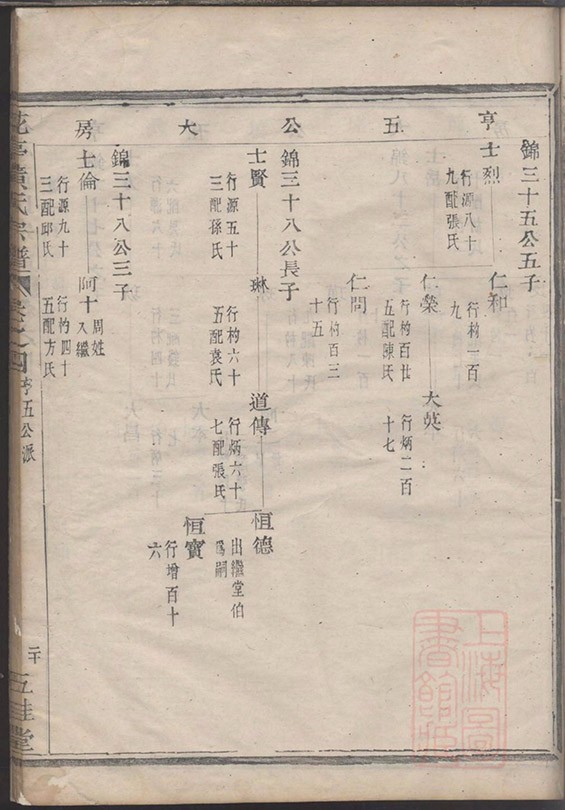 亨
五
公
大
房
錦三十五公五子
士烈
行源八十
九配張氏
仁和
行杓一百
九
仁榮
行杓百廿
五配陳氏
大英
行炳二百
十七
仁問
行杓百三
十五
錦三十八公長子
士賢
行源五十
三配孫氏
琳
行杓六十
五配袁氏
道傳
行炳六十
七配張氏
恒德
出繼堂伯
爲嗣
恒寶
行增百十
六
錦三十八公三子
士倫
行源九十
三配邱氏
阿十
周姓
入繼
行杓四十
五配方氏
黃氏宗譜
卷之四
亨五公派
二十
五桂堂
上海圖
書館藏